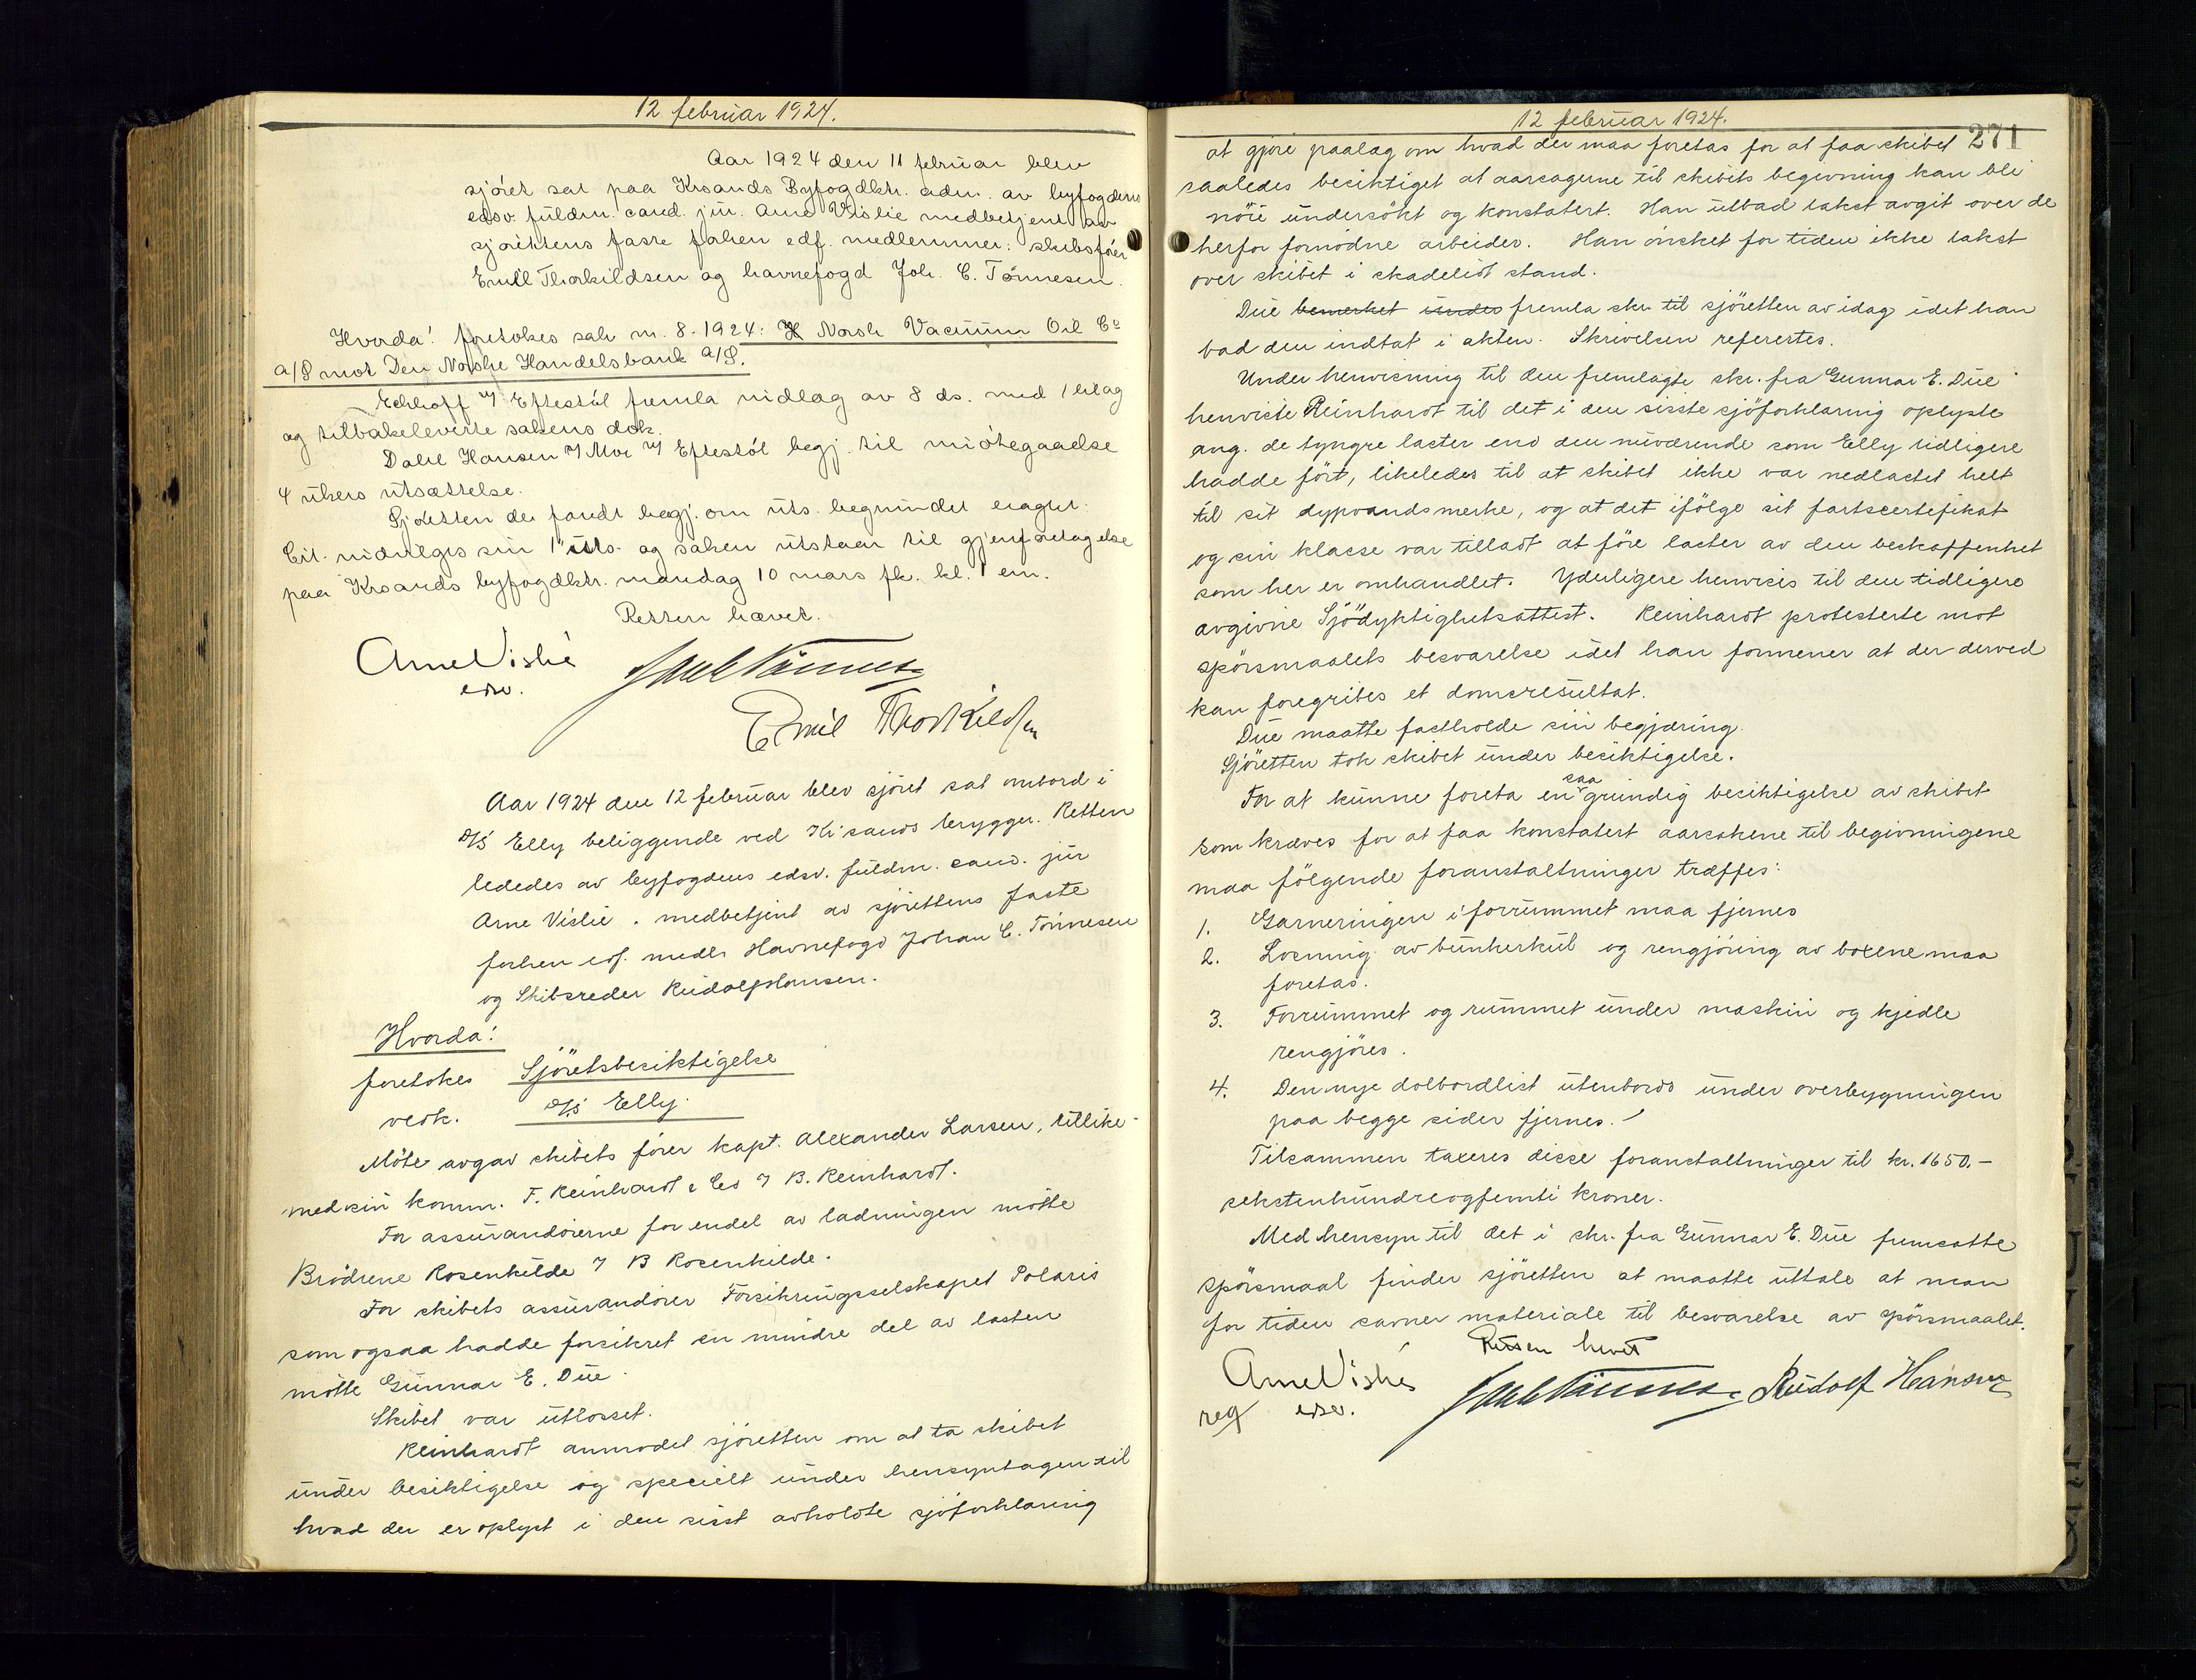 12 februar 1924.
Aar 1924 den 11 februar blev
sjöret sat paa Krsands Byfogdktr. adm. av byfogdens
edsv. fuldm. cand. jur. Arne Vislie medbetjent av
sjörettens faste forhen edf. medlemmer: skibsfører
Emil Thorkildsen og havnefogd Joh. C. Tönnesen.
Hvorda! foretokes sak nr. 8-1924: Norsk Vacuum Oil Co
A/S mot Den Norske Handelsbank A/S.
Eckhoff v/ Eftestöl fremla indlæg av 8 ds. med 1 bilag
og tilbakeleverte sakens dok.
Dahl Hansen v/ Moe v/ Eftestöl begj. til imötegaaelse
4 ukers utsættelse.
Sjöretten der fandt begj. om uts. begrundet eragtet:
Cit. indvilges sin 1ste uts. og saken utstaar til gjenforetagelse
paa Krsands byfogdktr. mandag 10 mars fk. kl. 1 em.
Retten hævet.
Arne Vislie
edsv.
Joh C Tönnesen
Emil Thorkildsen
Aar 1924 den 12 februar blev sjöret sat ombord i
D/S Elly beliggende ved Kr.sands brygger. Retten
lededes av byfogdens edsv. fuldm. cand. jur
Arne Vislie. medbetjent av sjörettens faste
forhen edf. medl. Havnefogd Johan C. Tönnesen
og Skibsreder Rudolf Hansen.
Hvorda!
foretokes Sjöretsbesiktigelse
vedk. D/S Elly.
Möte avgav skibets förer kapt. Alexander Larsen, tillike-
med sin komm. F. Reinhardt & Co v/ B. Reinhardt.
For assurandörerne for endel av ladningen mötte
Brödrene Rosenkilde v/ B Rosenkilde.
For skibets assurandörer Forsikringsselskapet Polaris
som ogsaa hadde forsikret en mindre del av lasten
mötte Gunnar E. Due.
Skibet var utlosset.
Reinhardt anmodet sjöretten om at ta skibet
under besiktigelse og specielt under hensyntagen til
hvad der er oplyst i den sisst avholdte sjöforklaring
12 februar 1924.
271
at gjöre paalæg om hvad der maa foretas for at faa skibet
saaledes besiktiget at aarsagerne til skibets begivning kan bli
nöie undersökt og konstatert. Han utbad takst avgit over de
herfor fornödne arbeider. Han önsket for tiden ikke takst
over skibet i skadelidt stand.
Due bemerket fremla skr. til sjöretten av idag idet han
bad den indtat i akten. Skrivelsen refereres.
Under henvisning til den fremlagte skr. fra Gunnar E. Due
henviste Reinhardt til det i den sisste sjöforklaring oplyste
ang. de tyngre laster end den nuværende som Elly tidligere
hadde fört, likeledes til at skibet ikke var nedlastet helt
til sit dypvandsmerke, og at det ifölge sit fartscertifikat
og sin klasse var tilladt at före laster av den beskaffenhet
som her er omhandlet. Yderligere henvises til den tidligere
avgivne Sjödyktighetsattest. Reinhardt protesterte mot
spörsmaalets besvarelse idet han formener at der derved
kan foregribes et domsresultat.
Due maatte fastholde sin begjæring.
Sjöretten tok skibet under besiktigelse.
For at kunne foreta en saa grundig besiktigelse av skibet
som kræves for at faa konstatert aarsakene til begivningene
maa fölgende foranstaltninger træffes:
1. Garneringen i forrummet maa fjernes
2. Losning av bunkerkul og rengjöring av boxene maa
foretas.
3. Forrummet og rummet under maskin og kjedle
rengjöres.
4. Den nye dolbordlist utenbords under overbygningen
paa begge sider fjernes.
Tilsammen taxeres disse foranstaltninger til kr. 1650.-
sekstenhundreogfemti kroner.
Med hensyn til det i skr. fra Gunnar E. Due fremsatte
spörsmaal finder sjöretten at maatte uttale at man
for tiden savner materiale til besvarelse av spörsmaalet.
Retten hævet
Arne Vislie
edsv.
reg
Joh C Tönnesen
Rudolf Hansen